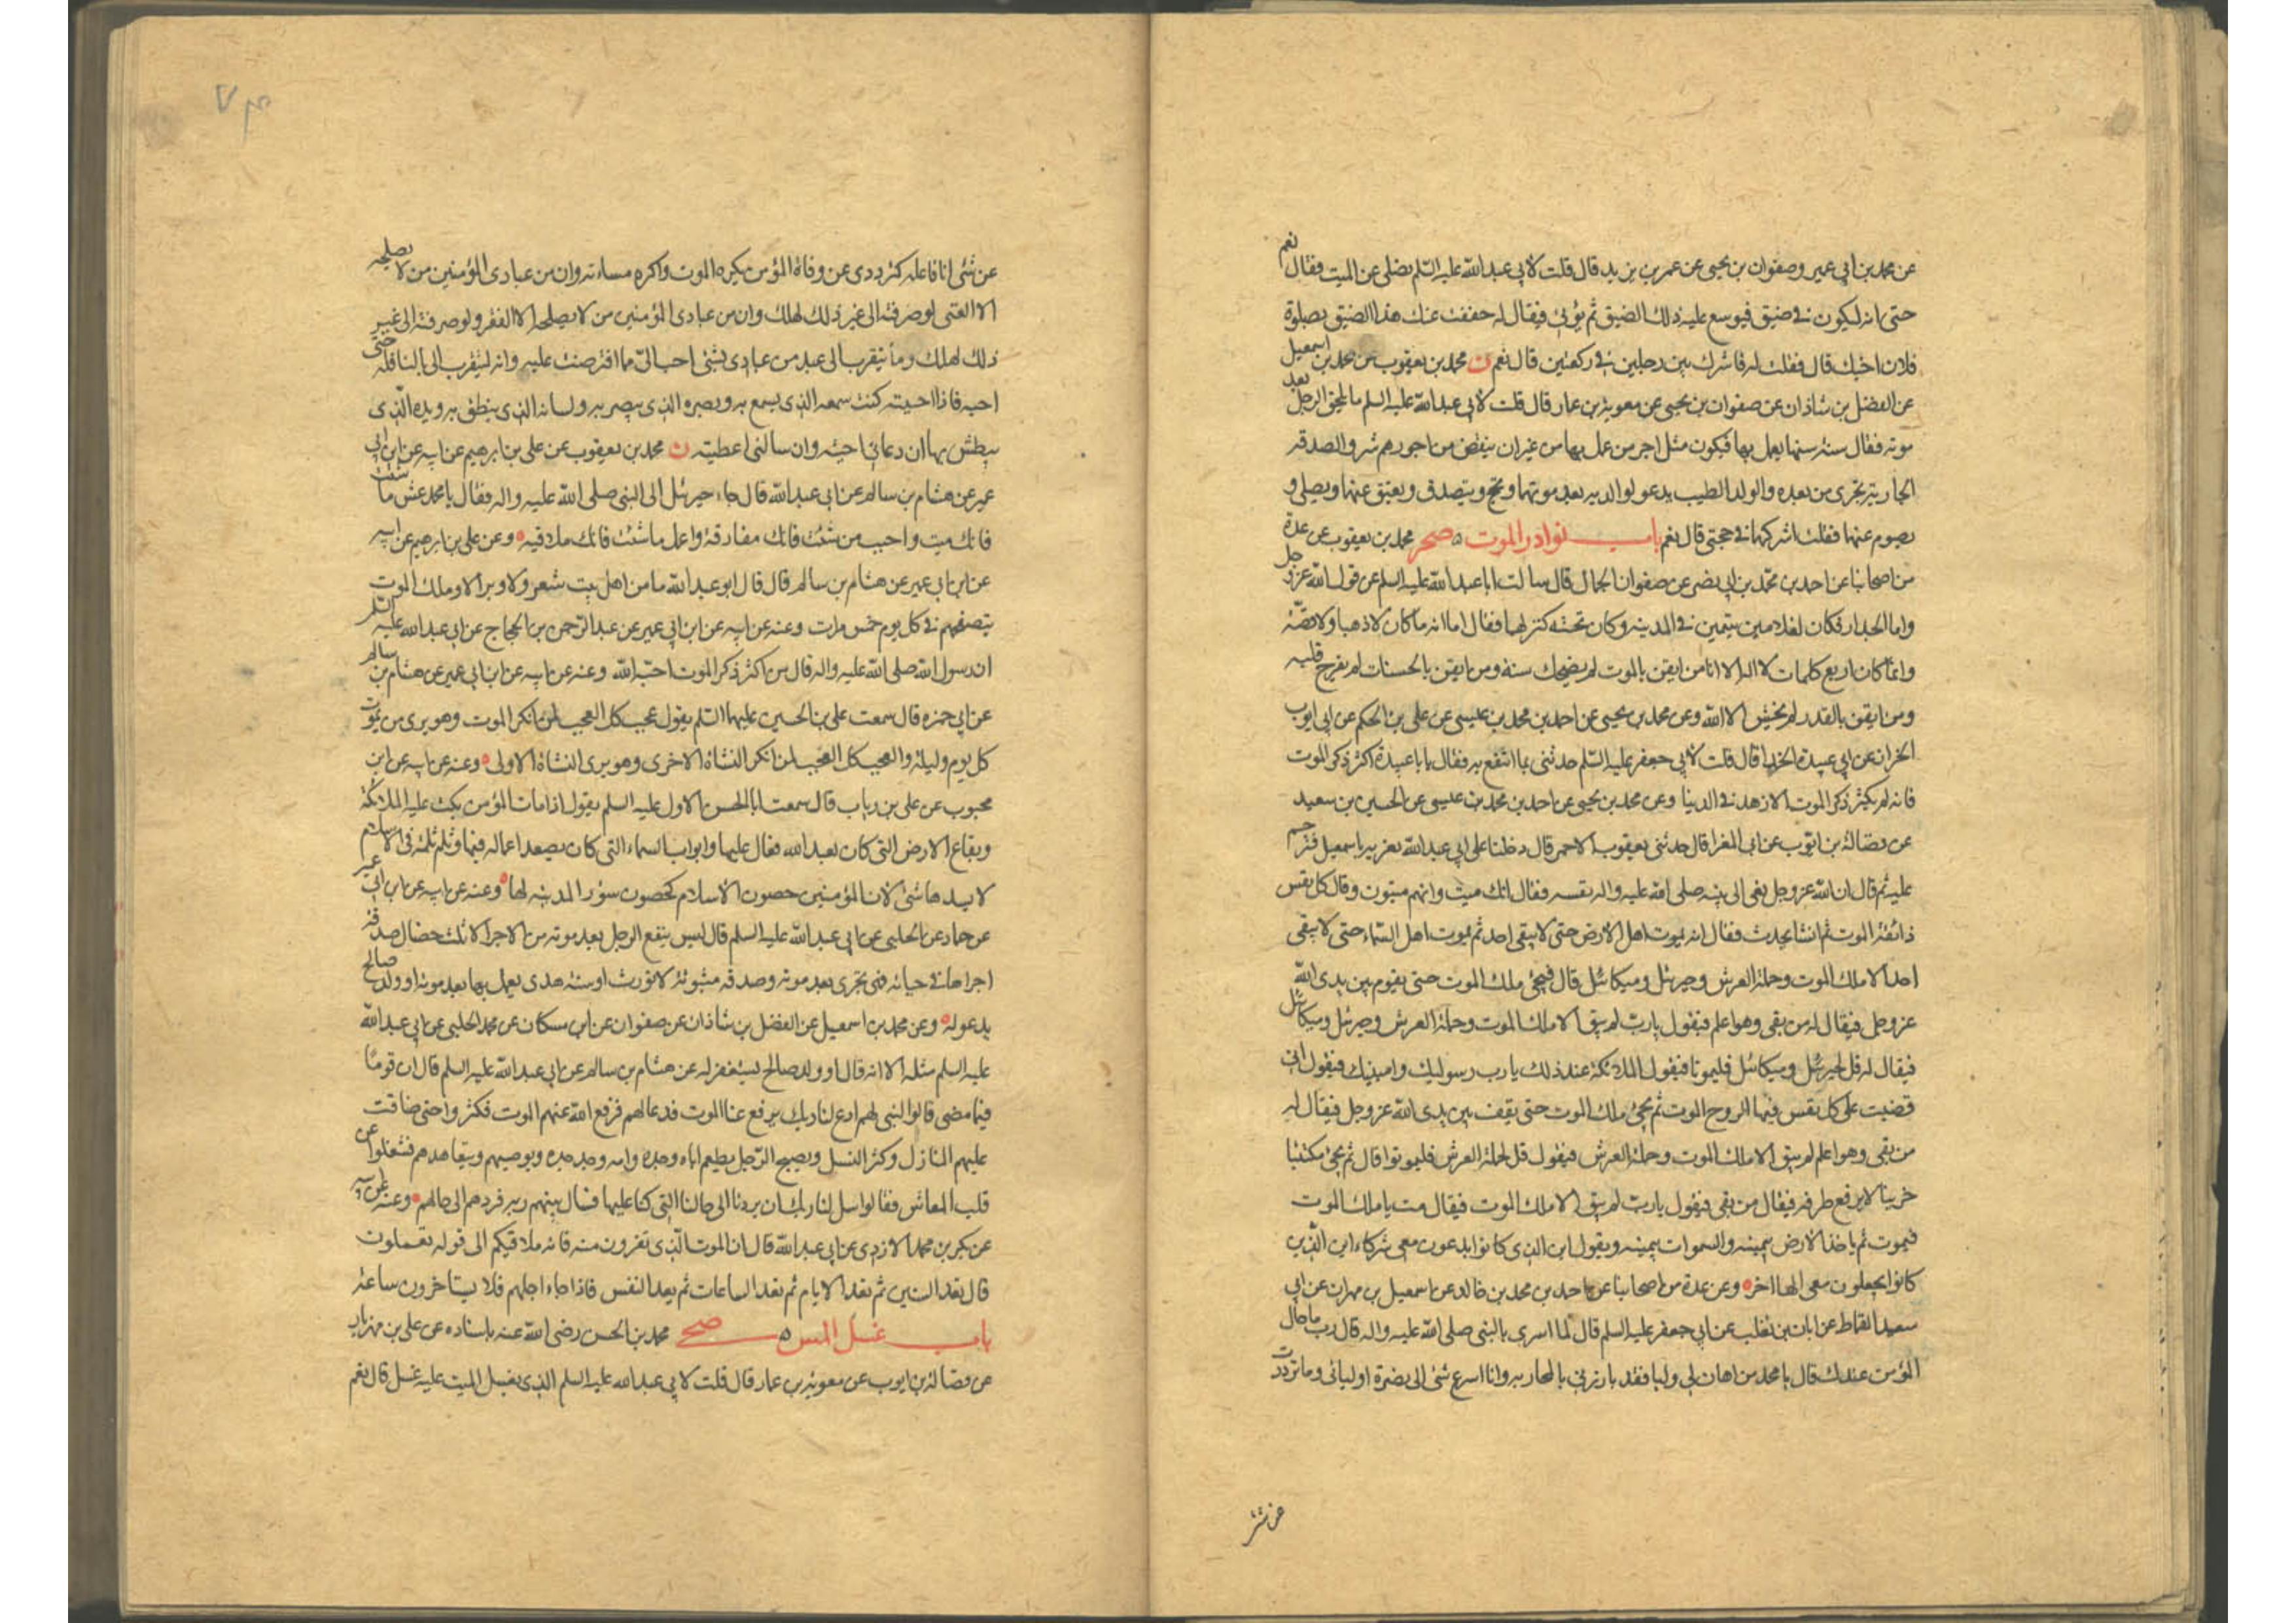 عن محمد بن ابى عمير وصفوان بن يحيى عن عمر بن يزيد قال قلت لابى عبد الله عليه السّلم يصلى عن الميت فقال نعم
حتى انه ليكون فى ضيق فيوسع عليه ذلك الضيق ثم يؤتى فيقال له خفف عنك هذا الضيق بصلوة
فلان اخيك قال فقلت له فاشرك بين رجلين فى ركعتين قال نعم ن محمد بن يعقوب عن محمد بن اسمعيل
عن الفضل بن شاذان عن صفوان بن يحيى عن معوية بن عمار قال قلت لابى عبد الله عليه السلم ما يلحق الرجل بعد
موته فقال سنة سنها يعمل بها فيكون مثل اجر من عمل بها من غير ان ينقض من اجورهم شئ والصدقة
الجارية تجرى من بعده والولد الطيب يدعو لوالديه بعد موتهما ويحج ويتصدق ويعتق عنهما ويصلى و
يصوم عنهما فقلت اشركهما فى حجتى قال نعم باب نوادر الموت صحر محمد بن يعقوب عن عدة
من اصحابنا عن احمد بن محمد بن ابى نصر عن صفوان الجمال قال سالت ابا عبد الله عليه السلم عن قول الله عز وجل
واما الجدار فكان لغلامين يتيمين فى المدينة وكان تحته كنز لهما فقال اما انه ما كان لا ذهبا ولا فضّة
وانما كان اربع كلمات لا اله الا انا من ايقن بالموت لم يضحك سنه ومن ايقن بالحسنات لم يفرح قلبه
ومن ايقن بالقدر لم يخش الا الله وعن محمد بن يحيى عن احمد بن محمد بن عيسى عن على بن الحكم عن ابى ايوب
الخزان عن ابى عبيدة الحذا قال قلت لابى جعفر عليه السّلم حدثنى بما انتفع به فقال يا با عبيدة اكثر ذكر الموت
فانه لم يكثر ذكر الموت الا زهد فى الدنيا وعن محمد بن يحيى عن احمد بن محمد بن عيسى عن الحسين بن سعيد
عن فضالة بن ايّوب عن ابى المغرا قال حدثنى يعقوب الاحمر قال دخلنا على ابى عبد الله نعزيه باسمعيل فترحم
عليه ثم قال ان الله عز وجل نعى الى نبيه صلى الله عليه واله نفسه فقال انك ميت وانهم ميتون وقال كل نفس
ذائقة الموت ثم انشا يحدث فقال انه يموت اهل الارض حتى لا يبقى احد ثم يموت اهل السّماء حتى لا يبقى
احد الا ملك الموت وحملة العرش وجبرئل وميكائل قال فيجئ ملك الموت حتى يقوم بين يدى الله
عز وجل فيقال له من بقى وهو اعلم فيقول يا ربّ لم يبق الا ملك الموت وحملة العرش وجبرئل وميكائل
فيقال له قل لجبرئل وميكائل فليموتا فيقول الملائكة عند ذلك يا رب رسوليك وامينيك فيقول انى
قضيت على كل نفس فيها الروح الموت ثم يجئ ملك الموت حتى يقف بين يدى الله عز وجل فيقال له
من بقى وهو اعلم لم يبق الا ملك الموت وحملة العرش فيقول قل لحملة العرش فليموتوا قال ثم يجئ مكتئبا
حزينا لا يرفع طرفه فيقال من بقى فيقول يا ربّ لم يبق الا ملك الموت فيقال مت يا ملك الموت
فيموت ثم ياخذ الارض بيمينه والسموات بيمينه ويقول اين الذى كانوا يدعون معى شركاء اين الّذين
كانوا يجعلون معى الها اخر وعن عدة من اصحابنا عن احمد بن محمد بن خالد عن اسمعيل بن مهران عن ابى
سعيد القماط عن ابان بن تغلب عن ابى جعفر عليه السلم قال لما اسرى بالنبى صلى الله عليه واله قال رب ما حال
المؤمن عندك قال يا محمد من اهان لى وليا فقد بارزنى بالمحاربه وانا اسرع شئ الى نصرة اوليائى وما ترددت
عن شئ
عن شئ انا فاعله كترددى عن وفاة المؤمن يكره الموت واكره مساءته وان من عبادى المؤمنين من لا يصلحه
الا الغنى لو صرفته الى غير ذلك لهلك وان من عبادى المؤمنين من لا يصلحه الا الفقر ولو صرفته الى غير
ذلك لهلك وما يتقرب الى عبد من عبادى بشئ احب الىّ مما افترضت عليه وانه ليتقرب الى بالنافله حتى
احبه فاذا احببته كنت سمعه الذى يسمع به وبصره الذى يبصر به ولسانه الذى ينطق به ويده الّذى
يبطش بها ان دعانى اجبته وان سالنى اعطيته ن محمد بن يعقوب عن على بن ابرهيم عن ابيه عن ابن ابى
عمير عن هشام بن سالم عن ابى عبد الله قال جاء جبرئل الى النبى صلى الله عليه واله فقال يا محمد عش ما شئت
فانك ميت واحبب من شئت فانك مفارقه واعمل ما شئت فانك ملاقيه وعن على بن ابرهيم عن ابيه
عن ابن ابى عمير عن هشام بن سالم قال قال ابو عبد الله ما من اهل بيت شعر ولا وبر الا وملك الموت
يتصفحهم فى كل يوم خمس مرات وعنه عن ابيه عن ابن ابى عمير عن عبد الرّحمن بن الحجاج عن ابى عبد الله عليه السّلم
ان رسول الله صلى الله عليه واله قال من اكثر ذكر الموت احبّه الله وعنه عن ابيه عن ابن ابى عمير عن هشام بن سالم
عن ابى حمزه قال سمعت على بن الحسين عليهما السّلم يقول عجب كل العجب لمن انكر الموت وهو يرى من يموت
كل يوم وليلة والعجب كل العجب لمن انكر النشاة الاخرى وهو يرى النشاة الاولى وعنه عن ابيه عن ابن
محبوب عن على بن رياب قال سمعت ابا الحسن الاول عليه السلم يقول اذا مات المؤمن بكت عليه الملائكة
وبقاع الارض التى كان يعبد الله فقال عليها وابواب السماء التى كان يصعد اعماله فيها وثلم ثلمة فى الاسلام
لا يسدها شئ لان المؤمنين حصون الاسلام كحصون سؤر المدينه لها وعنه عن ابيه عن ابن ابى عمير
عن حماد عن الحلبى عن ابى عبد الله عليه السلم قال ليس يتبع الرجل بعد موته من الاجر الا ثلث خصال صدقة
اجراها فى حياته فهى تجرى بعد موته وصدقه مبتوتة لا تورث او سنة هدى يعمل بها بعد موته او ولد صالح
يدعو له وعن محمد بن اسمعيل عن الفضل بن شاذان عن صفوان عن ابن مسكان عن محمد الحلبى عن ابى عبد الله
عليه السلم مثله الا انه قال او ولد صالح يستغفر له عن هشام بن سالم عن ابى عبد الله عليه السلم قال ان قومًا
فيما مضى قالوا لنبى لهم ادع لنا ربك يرفع عنا الموت فدعا لهم فرفع الله عنهم الموت فكثروا حتى ضاقت
عليهم المنازل وكثر النسل ويصبح الرّجل يطعم اباه وجده وامه وجد جده ويوصيهم ويتعاهدهم فشغلوا عن
قلب المعاش فقالوا سل لنا ربك ان يردنا الى حالنا التى كنا عليها فسال نبيهم ربه فردهم الى حالهم وعنه عن ابيه
عن بكر بن محمد الازدى عن ابى عبد الله قال ان الموت الّذى تفرون منه فانه ملاقيكم الى قوله تعملون
قال تعد السنين ثم تعد الايام ثم تعد الساعات ثم يعد النفس فاذا جاء اجلهم فلا يستاخرون ساعة
باب غسل المس صحى محمد بن الحسن رضى الله عنه باسناده عن على بن مهزيار
عن فضالة بن ايوب عن معوية بن عمار قال قلت لابى عبد الله عليه السلم الذى يغسل الميت عليه غسل قال نعم